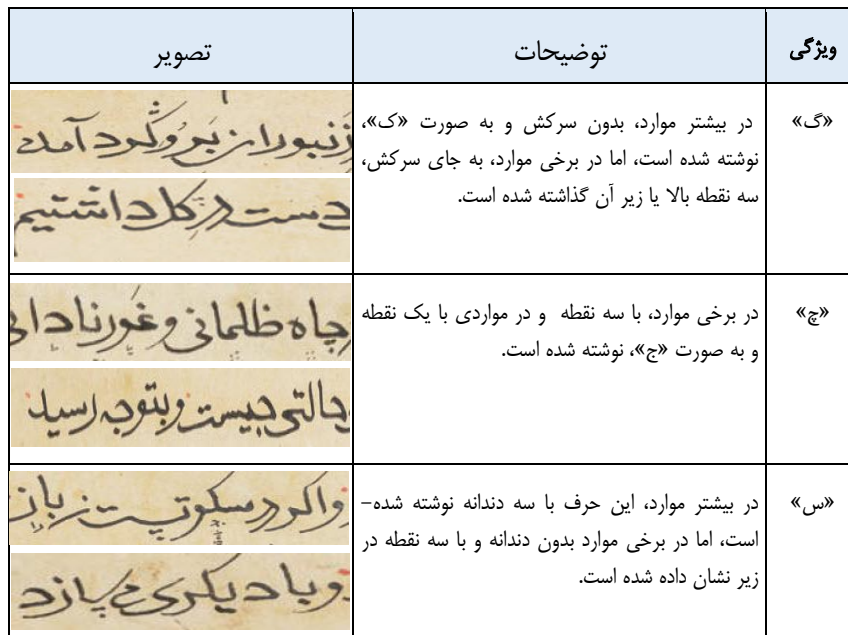 ویژگی توضیحات تصویر
«گ»
در بیشتر موارد، بدون سرکش و به صورت «ک»،
نوشته شده است، اما در برخی موارد، به جای سرکش،
سه نقطه بالا یا زیر آن گذاشته شده است.
زنبوران بر و کرد آمده
دست در کل داشتیم
«چ»
در برخی موارد، با سه نقطه و در مواردی با یک نقطه
و به صورت «ج»، نوشته شده است.
چاه ظلمانی و غور نادانی
حالتی جیست و بتو جه رسید
«س»
در بیشتر موارد، این حرف با سه دندانه نوشته شده-
است، اما در برخی موارد بدون دندانه و با سه نقطه در
زیر نشان داده شده است.
واکر در سکوتیست زبان
و با دیکری می سازد